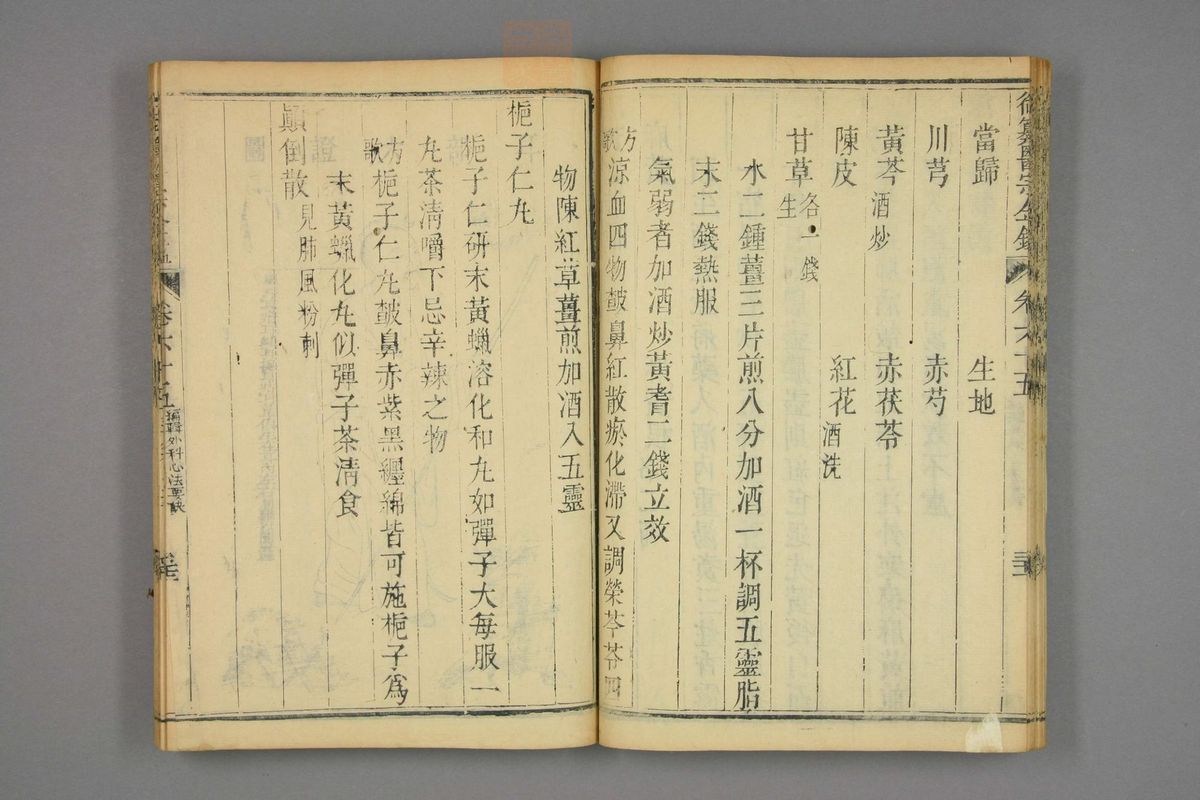 御纂醫宗金鑑 卷六十五
當歸 生地
川芎 赤芍
黃芩酒炒 赤茯苓
陳皮 紅花酒洗
甘草生各一錢
水二鍾薑三片煎八分加酒一杯調五靈脂
末二錢熱服
氣弱者加酒炒黃耆二錢立效
方歌 涼血四物皷鼻紅散瘀化滯又調榮芩苓四
物陳紅草薑煎加酒入五靈
梔子仁丸
梔子仁研末黃蠟溶化和丸如彈子大每服一
丸茶清嚼下忌辛辣之物
方歌 梔子仁丸皷鼻赤紫黑纏綿皆可施梔子為
末黃蠟化丸似彈子茶清食
顛倒散見肺風粉刺
卷六十五 編輯外科心法要訣